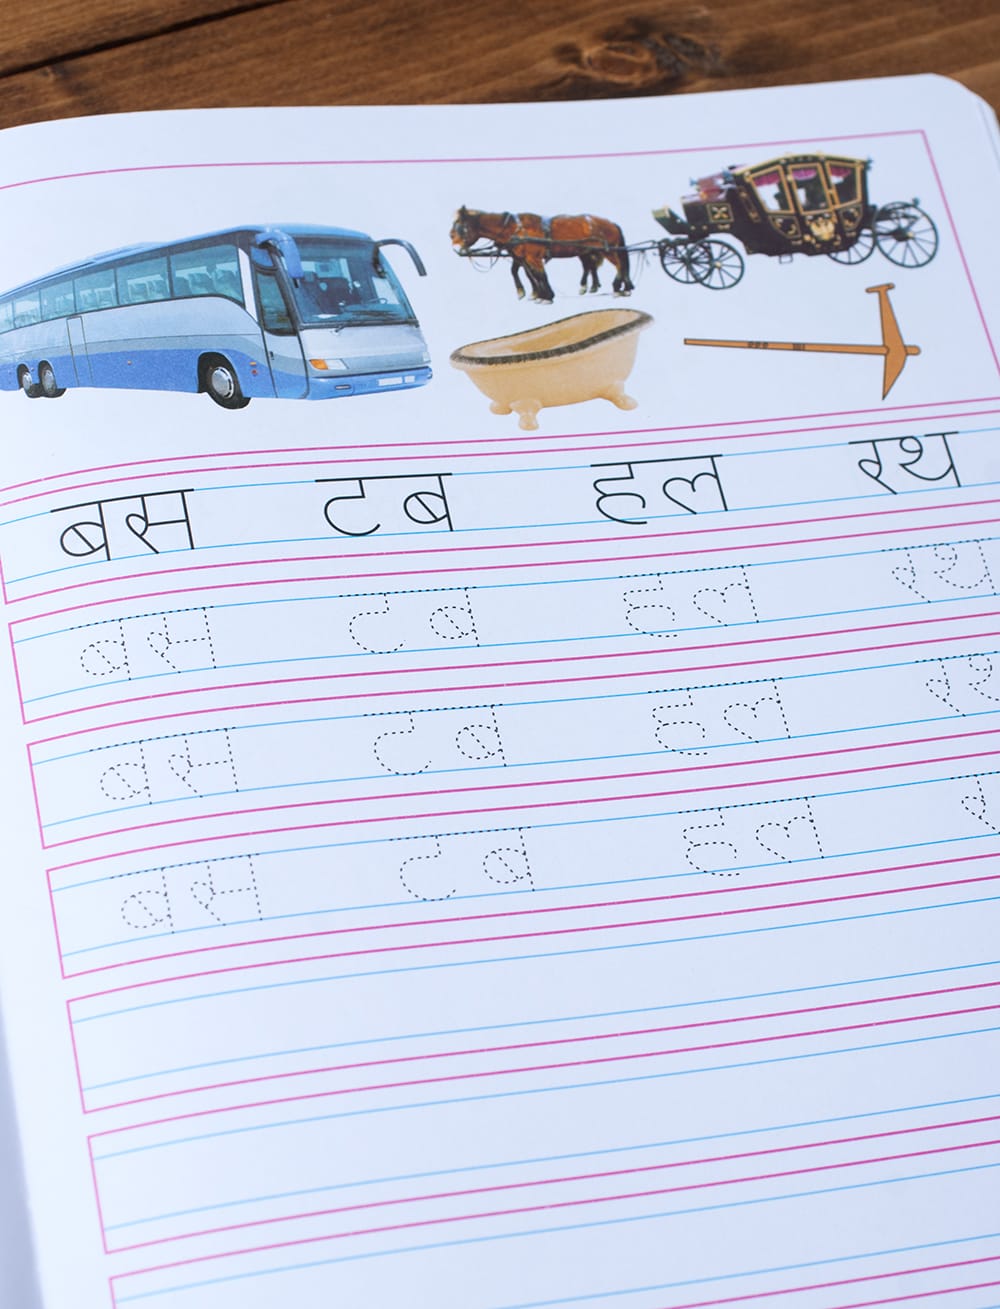 बस टब हल रथ
बस टब हल रथ
बस टब हल रथ
बस टब हल र